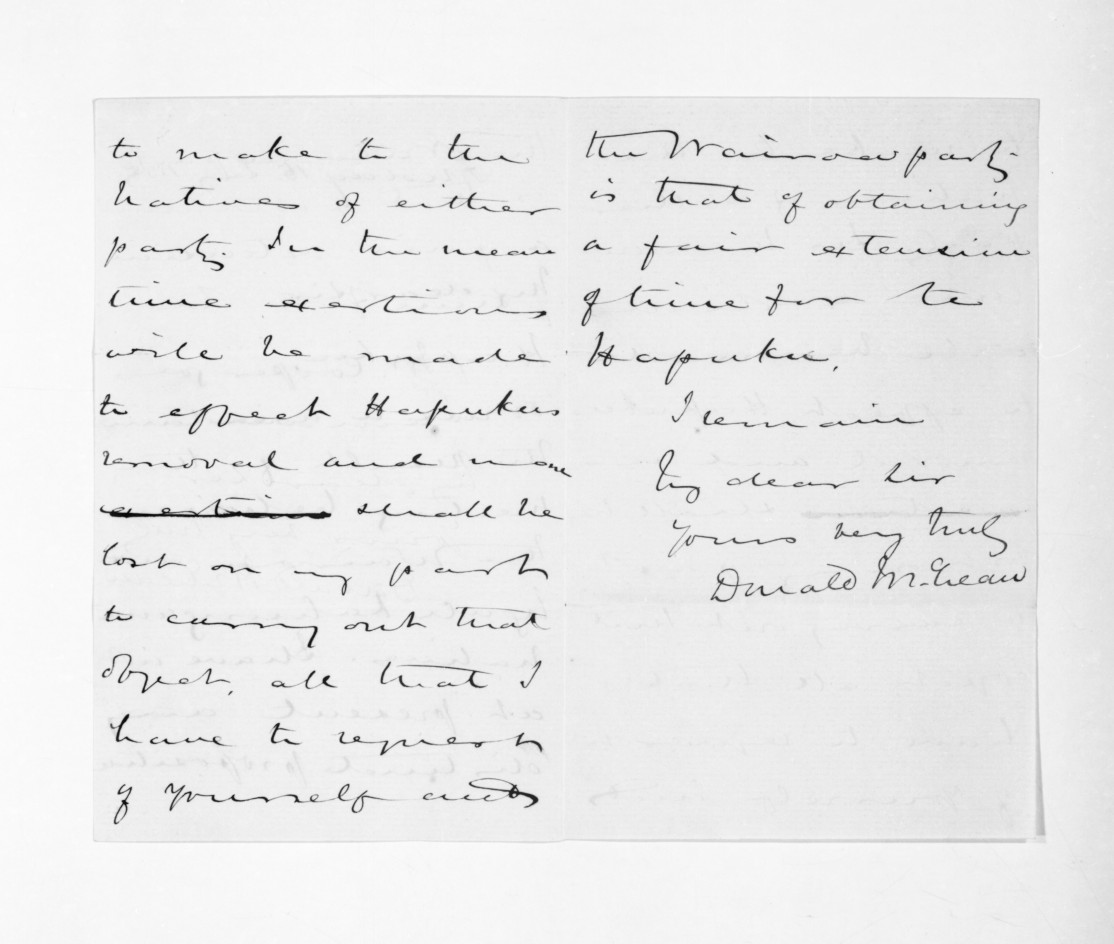 to make to the
Natives of either
party. In the mean
time exertions
will be made
to effect Hapukus
removal and none
exertions shall be
lost on my part
to carry out that
object, all that I
have to request
of yourself and
the Wairoa party
is that of obtaining
a fair extension
of time for te
Hapuku,
I remain
My dear Sir
Yours very truly
Donald McLean